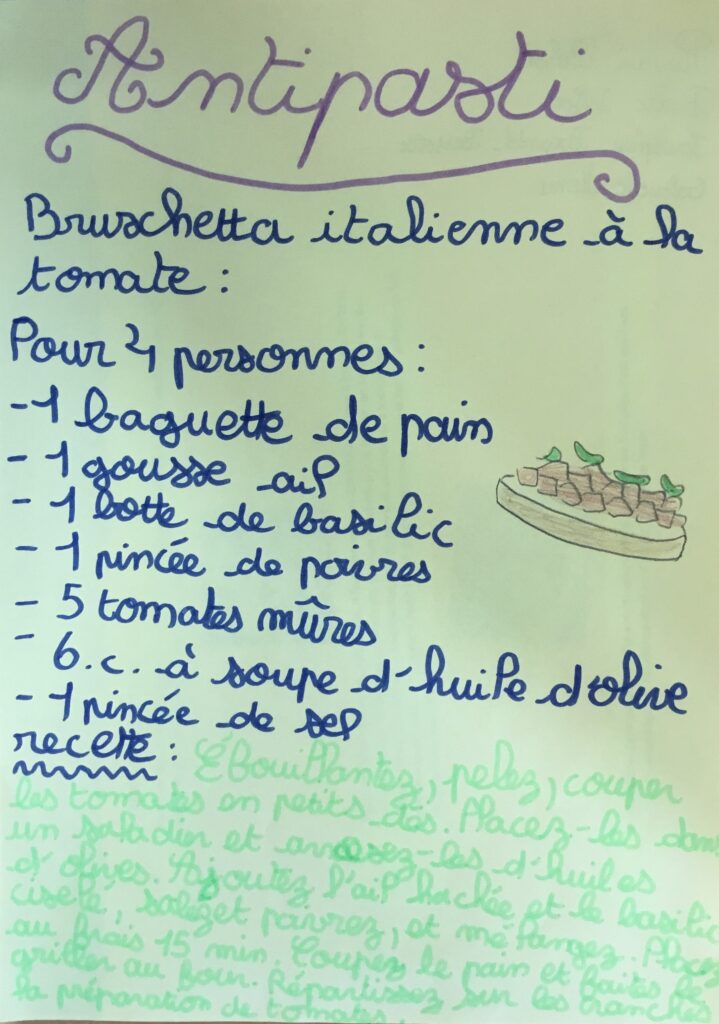 Antipasti
Bruschetta italienne à la
tomate :
Pour 4 personnes :
-1 baguette de pain
- 1 gousse ail
- 1 botte de basilic
- 1 pincée de poivres
- 5 tomates mûres
- 6.c. à soupe d'huile d'olive
- 1 pincée de sel
recette :
Ébouillantez, pelez, couper
les tomates en petits dés. Placez-les dans
un saladier et arrosez-les d'huiles
d'olives. Ajoutez l'ail hachée et le basilic
ciselé, salez et poivrez, et mélangez. Placez
au frais 15 min. Coupez le pain et faites le
griller au four. Répartissez sur les tranches
la préparation de tomates.